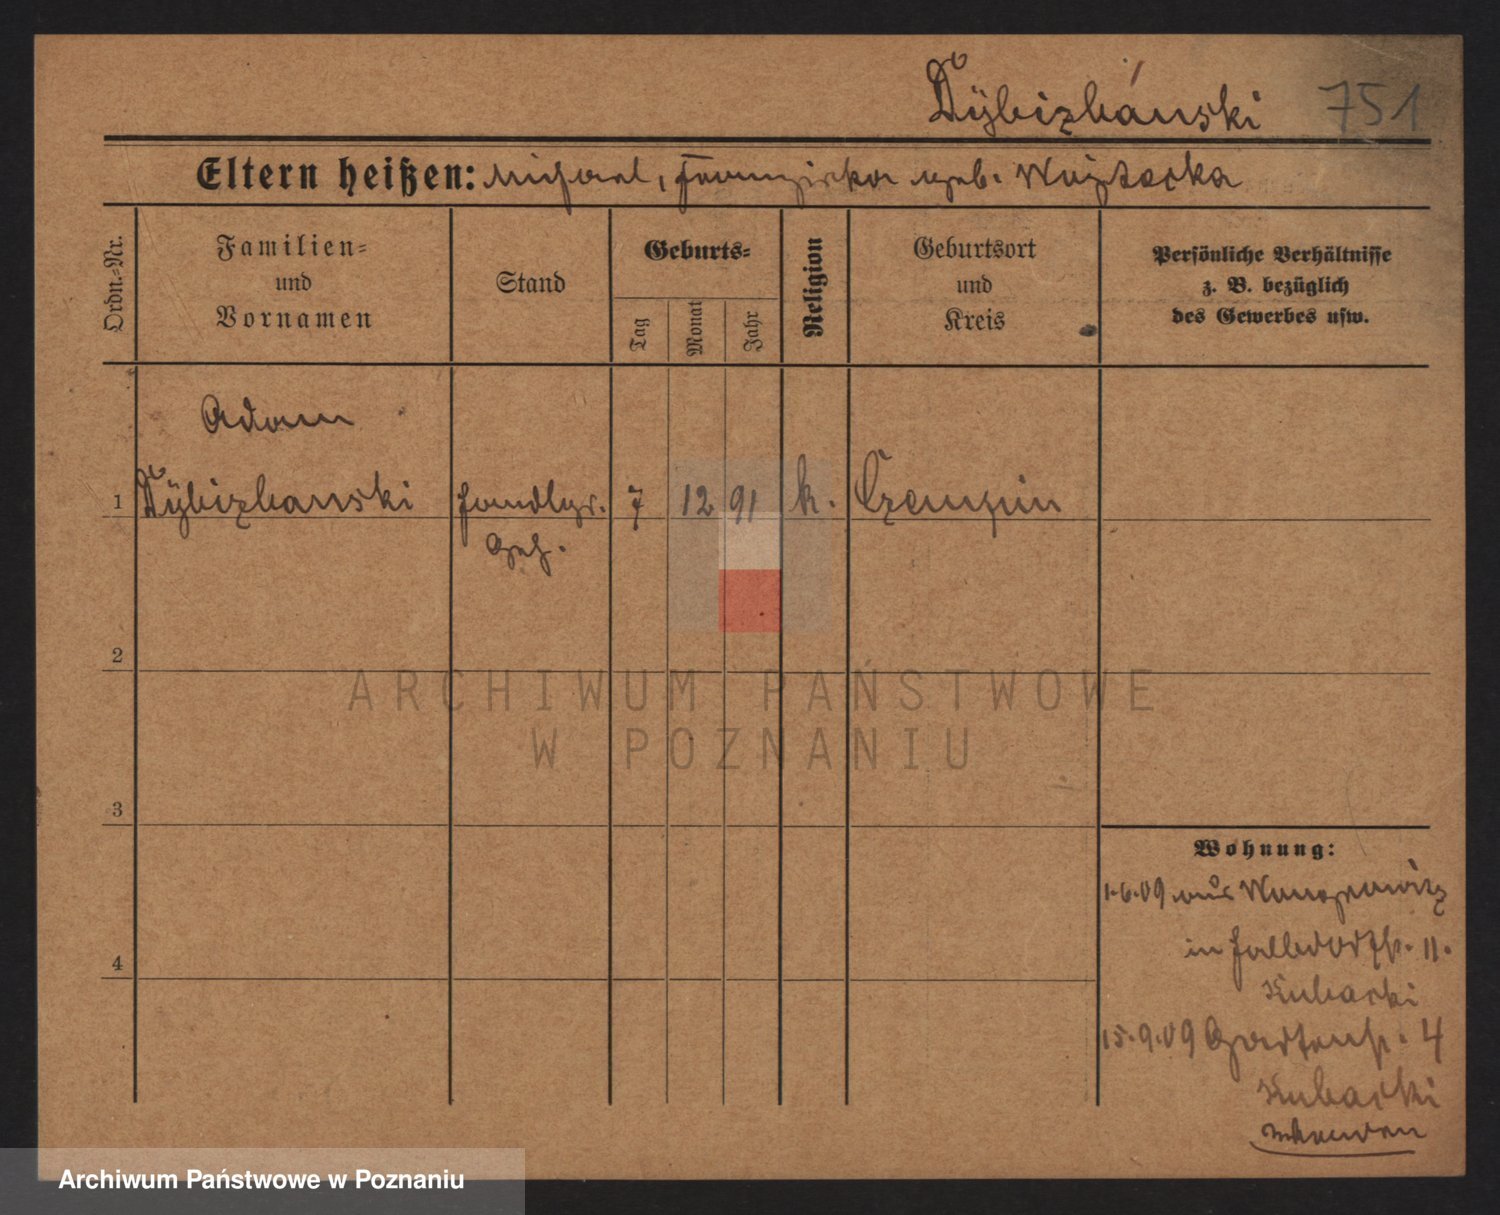 Dÿbizbański 751
Eltern heißen: Michael, Franziska geb. Woyzecka
Ordn.=Nr.
Familien=
und
Vornamen
Stand
Geburts=
Tag
Monat
Jahr
Religion
Geburtsort
und
Kreis
Persönliche Verhältnisse
z. B. bezüglich
des Gewerbes usw.
Adam
1 Dÿbizbanski Handlgs. 7 12 91 k. Czempin
Geh.
2
ARCHIWUM PAŃSTWOWE
W POZNANIU
3
Wohnung:
1.6.09 aus Wongrowitz
in Halbdorfstr. 11.
Kubacki
4
15.9.09 Gartenstr. 4
Kubacki
Archiwum Państwowe w Poznaniu